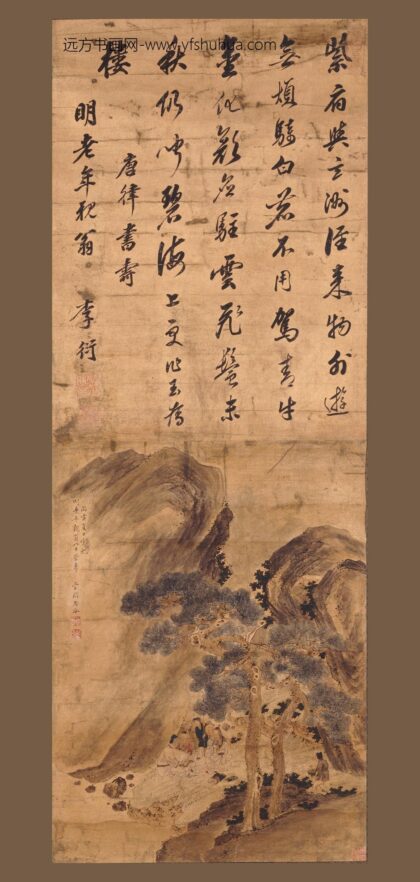 远方书画网-www.yfshuhua.com
紫府與玄洲誰來物外遊
無煩騎白鹿不用駕青牛
金化顏應駐雲飛鬢未
秋仍聞碧海上更作玉為
樓
唐律書壽
明老年親翁 李衍